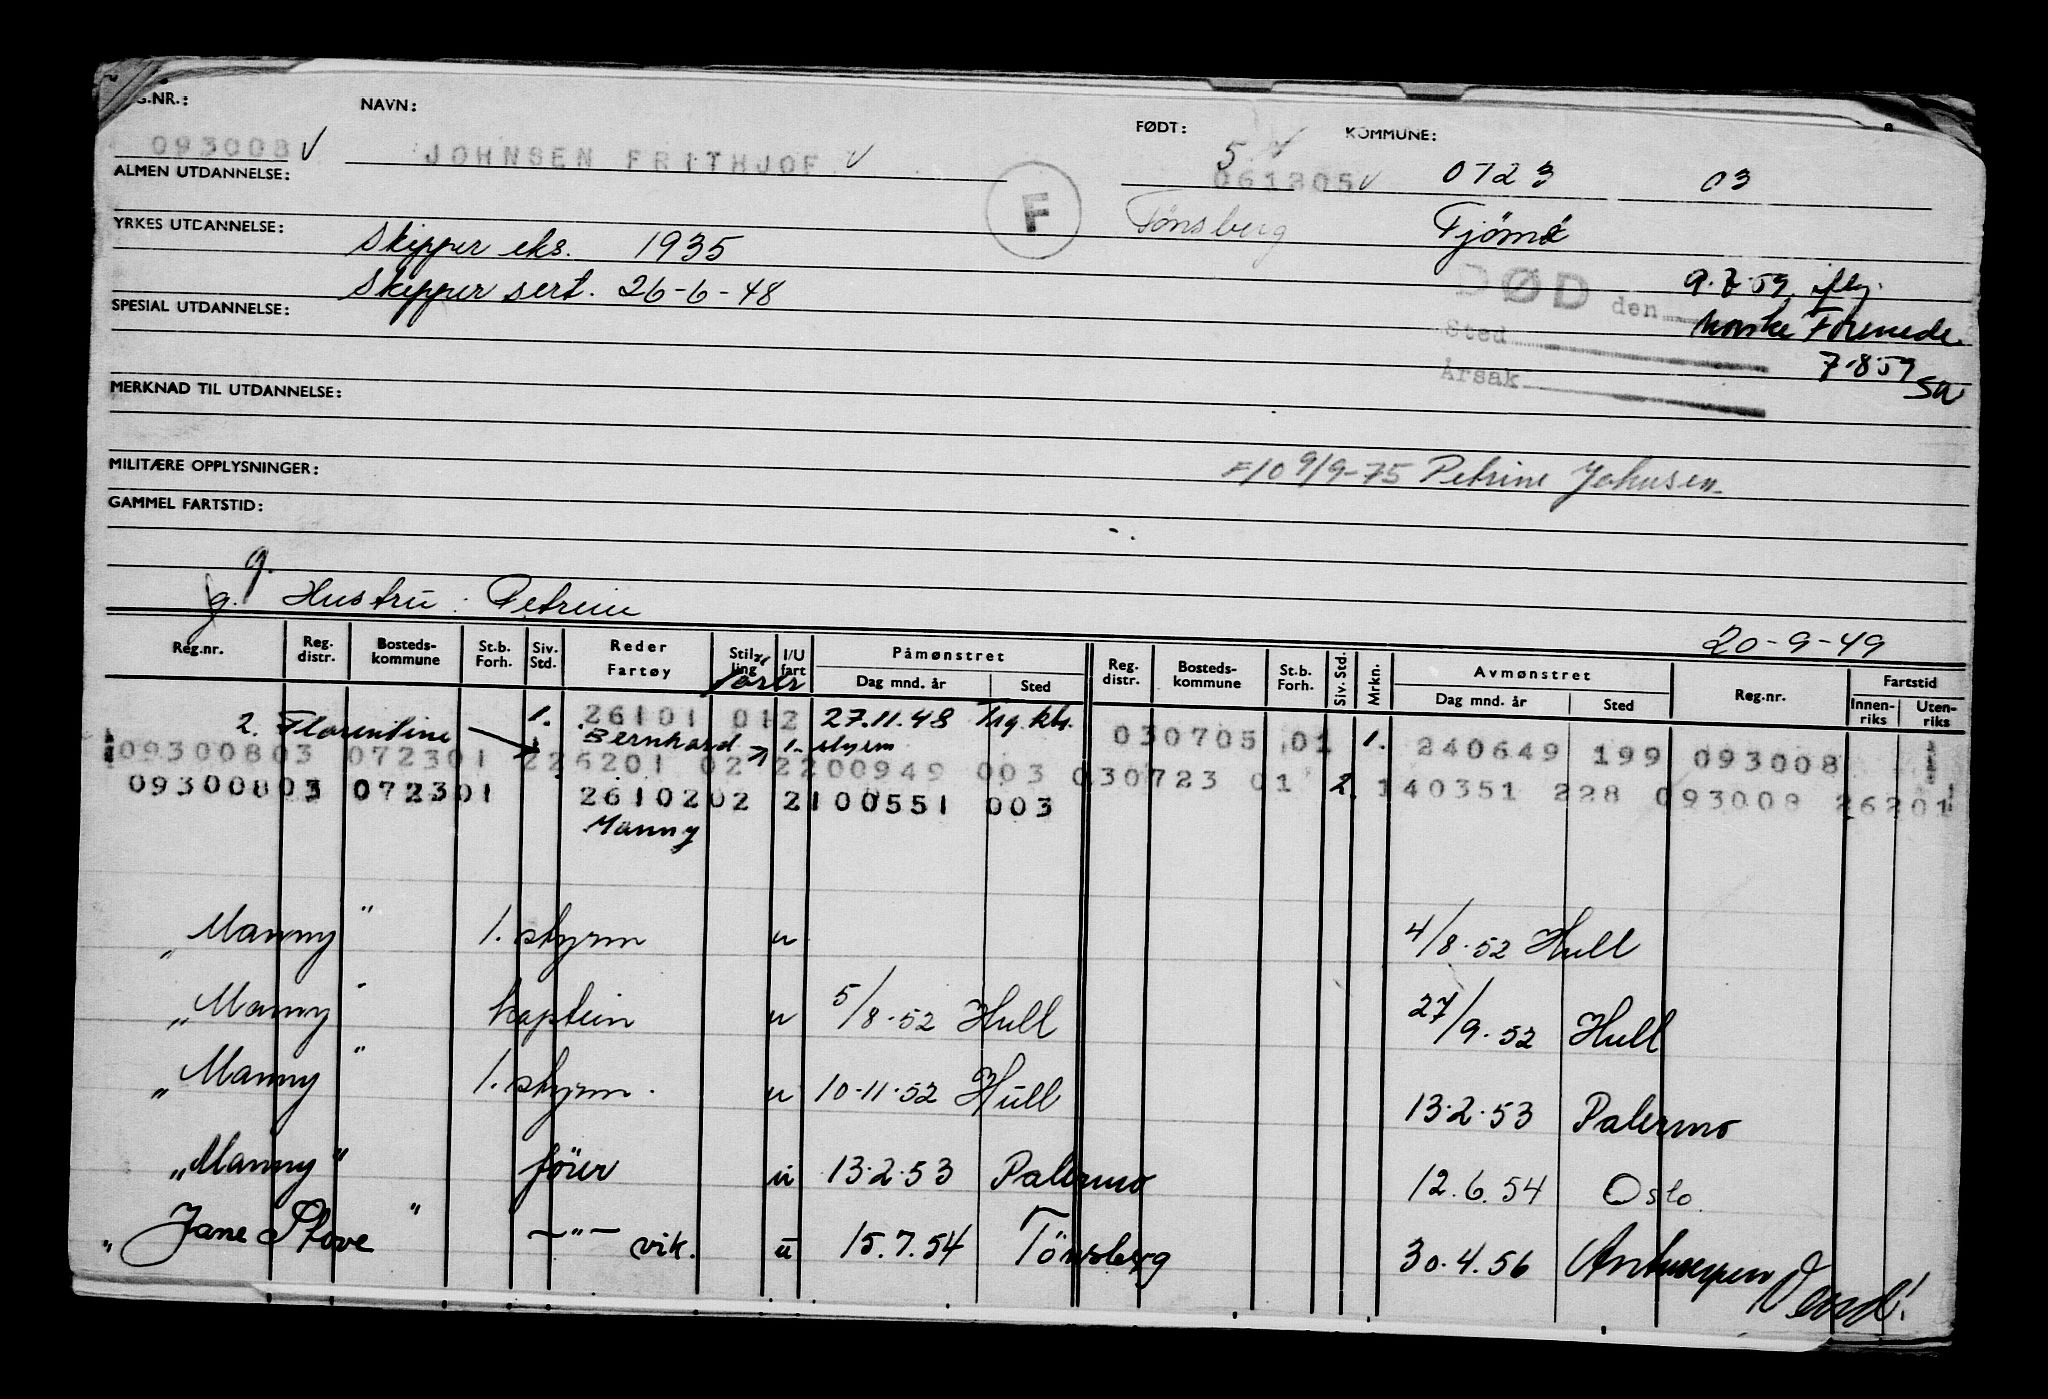 G.NR.: NAVN: FØDT: KOMMUNE:
093008 √ JOHNSEN FRITHJOF √ 5 061805 √ 0723 03
ALMEN UTDANNELSE: F Tønsberg Tjöme
YRKES UTDANNELSE: Skipper eks. 1935
Skipper sert. 26-6-48
DØD den 9.7.59 iflg.
Norske Forenede
Sted 7.8.59
Årsak SA
SPESIAL UTDANNELSE:
MERKNAD TIL UTDANNELSE:
MILITÆRE OPPLYSNINGER: F/O 9/9-75 Petrine Johnsen
GAMMEL FARTSTID:
g.
g. Hustru: Petrine
20-9-49
Reg.nr. Reg. distr. Bosteds-kommune St.b. Forh. Siv. Std. Reder Fartøy Stilling I/U fart Påmønstret Dag mnd. år Sted Reg. distr. Bosteds-kommune St.b. Forh. Siv. Std. Mrkn. Avmønstret Dag mnd. år Sted Reg.nr. Fartstid Innen-riks Uten-riks
fører
2. Florentine 1. 26101 012 27.11.48 Tsg. kbr.
Bernhard 1. styrm 030705 01 1. 240649 199 093008
09300803 072301 226201 02 2200949 003 030723 01 2. 140351 228 093008 26201
09300803 072301 2610202 2100551 003
Manny
"Manny" 1. styrm u 4/8.52 Hull
"Manny" kaptein u 5/8.52 Hull 27/9.52 Hull
"Manny" 1. styrm. u 10-11-52 Hull 13.2.53 Palermo
"Manny" förer u 13.2.53 Palermo 12.6.54 Oslo.
"Jane Stove" —"— vik. u 15.7.54 Tönsberg 30.4.56 Antwerpen
Vend!